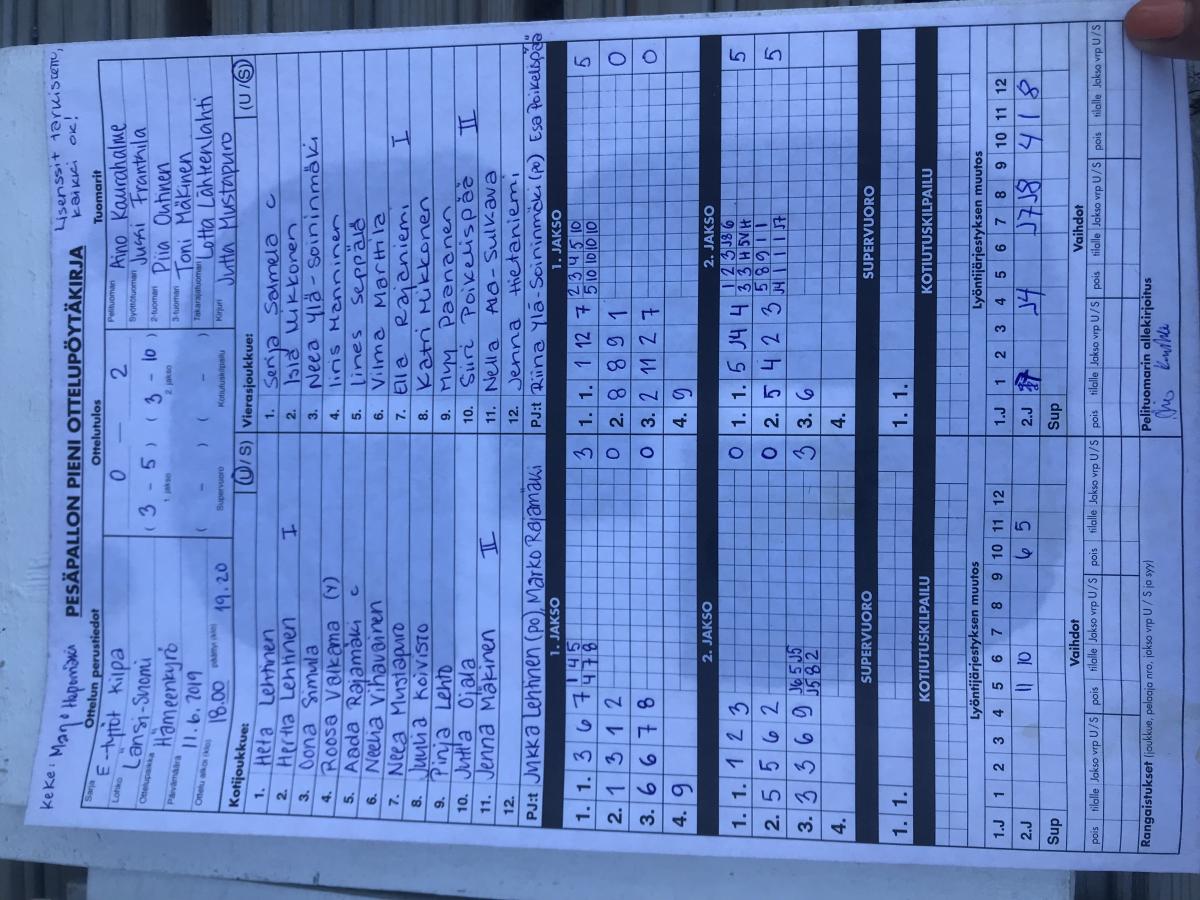 KeKe: Marjo Hupumäki
Lisenssit tarkistettu, kaikki ok!
PESÄPALLON PIENI OTTELUPÖYTÄKIRJA
Ottelun perustiedot
Sarja
E-tytöt Kilpa
Lohko
Länsi-Suomi
Ottelupaikka
Hämeenkyrö
Päivämäärä
11.6.2019
Ottelu alkoi (klo) 18.00 päättyi (klo) 19.20
Ottelutulos
0 — 2
( 3 - 5 ) ( 3 - 10 )
1. jakso 2. jakso
( - ) ( - )
Supervuoro Kotiutuskilpailu
Tuomarit
Pelituomari Aino Kaurahalme
Syöttötuomari Jussi Franttila
2-tuomari Piia Outinen
3-tuomari Toni Mäkinen
Takarajatuomari Lotta Lähteenlahti
Kirjuri Jutta Mustapuro
Kotijoukkue: (U/S)
1. Heta Lehtinen
2. Hertta Lehtinen I
3. Oona Simula
4. Roosa Valkama (Y)
5. Aada Rajamäki C
6. Neelia Vihavainen
7. Neea Mustapuro
8. Juulia Koivisto
9. Pinja Lehto
10. Jutta Ojala
11. Jenna Mäkinen II
12.
PJ:t Jukka Lehtinen (PO), Marko Rajamäki
Vierasjoukkue: (U/S)
1. Senja Salmela C
2. Isla Mikkonen
3. Neea Ylä-Soininmäki
4. Iiris Manninen
5. Lines Seppälä
6. Vilma Marttila
7. Ella Rajaniemi I
8. Katri Mikkonen
9. Myy Paananen
10. Siiri Poikelispää II
11. Nella Ala-Sulkava
12. Jenna Hietaniemi
PJ:t Riina Ylä-Soininmäki (PO) Esa Poikelispää
1. JAKSO 1. JAKSO
1. 1. 3 6 7 1 4 5 3
4 7 8
2. 1 3 1 2 0
3. 6 6 7 8 0
4. 9
1. 1. 1 12 7 2 3 4 5 10 5
5 10 10 10 10
2. 8 8 9 1 0
3. 2 11 2 7 0
4. 9
2. JAKSO 2. JAKSO
1. 1. 1 2 3 0
2. 5 5 6 2 0
3. 3 6 9 J6 5 J5 J5 3
J5 5 8 2
4.
1. 1. 5 J4 4 1 2 3 J8 6 5
2. 5 4 2 3 5 8 9 1 1 5
J4 1 1 1 J7
3. 6
4.
SUPERVUORO SUPERVUORO
1. 1. 1. 1.
KOTIUTUSKILPAILU KOTIUTUSKILPAILU
Lyöntijärjestyksen muutos Lyöntijärjestyksen muutos
1.J 1 2 3 4 5 6 7 8 9 10 11 12
2.J 11 10 6 5
Sup
1.J 1 2 3 4 5 6 7 8 9 10 11 12
2.J J4 J7 J8 4 1 8
Sup
Vaihdot Vaihdot
pois tilalle Jakso vrp U/S pois tilalle Jakso vrp U/S pois tilalle Jakso vrp U/S pois tilalle Jakso vrp U/S
Rangaistukset (joukkue, pelaaja nro, jakso vrp U / S ja syy)
Pelituomarin allekirjoitus